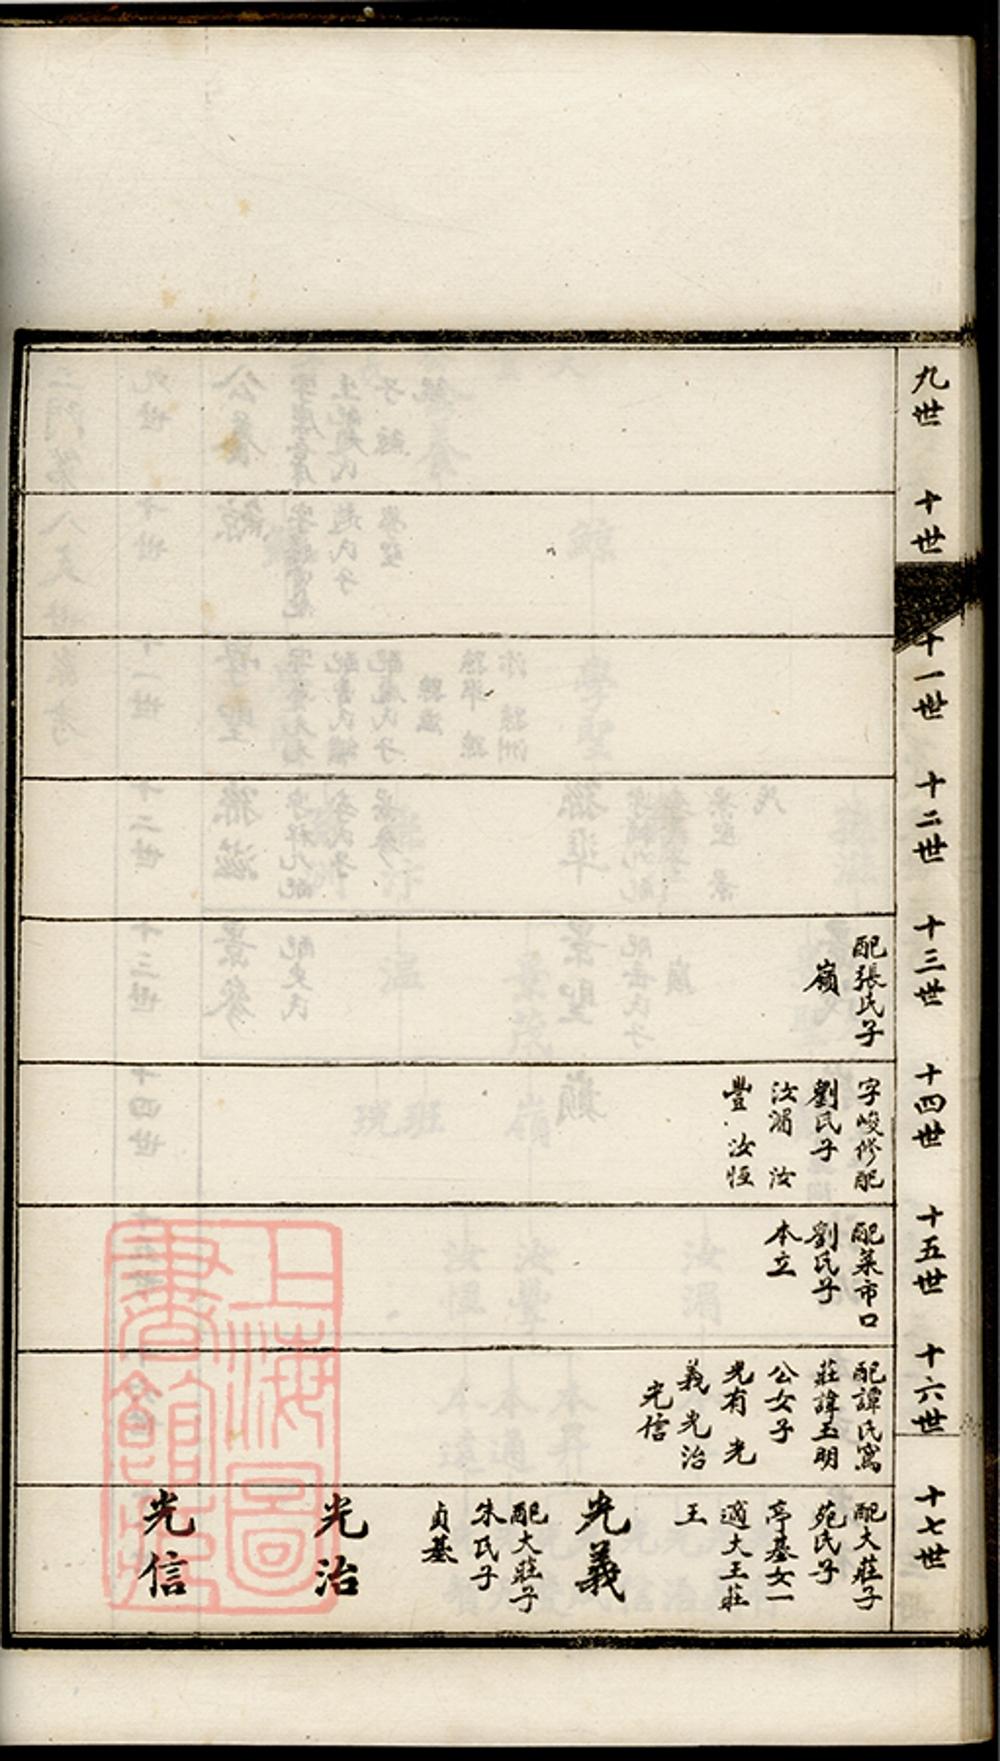 九世
十世
十一世
十二世
十三世
配張氏子
嶺
十四世
字峻修配
劉氏子
汝湄 汝
豐 汝恒
十五世
配菜市口
劉氏子
本立
十六世
配譚氏窩
莊諱玉明
公女子
光有 光
義 光治
光信
十七世
配大莊子
苑氏子
亭基女一
適大王莊
王
光義
配大莊子
朱氏子
貞基
光治
光信
上海圖
書館藏